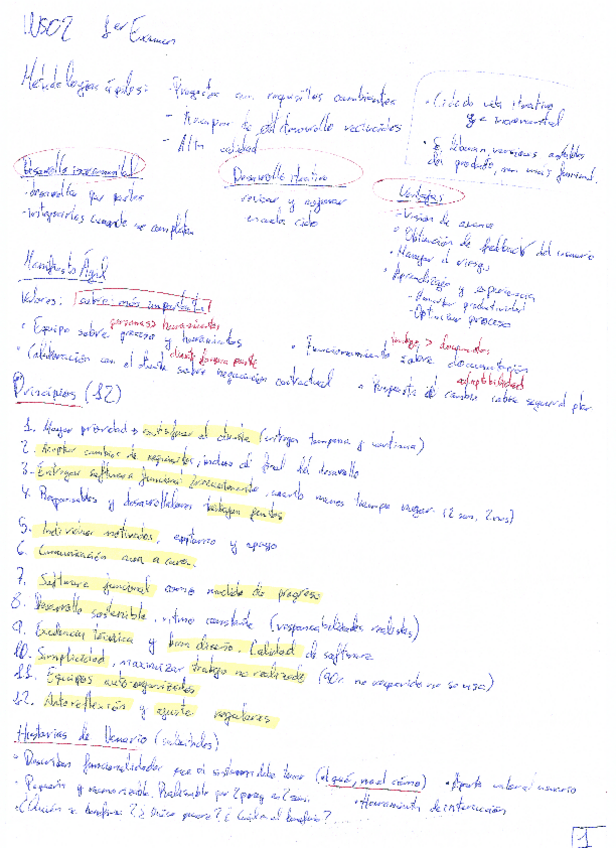 WSO2 1er Examen
Metodologías ágiles: Proyectos con requisitos cambiantes
- Tiempos de desarrollo reducidos
- Alta calidad
· Ciclo de vida iterativo e incremental
· Se liberan versiones estables del producto, con más funcional.
Desarrollo incremental
- desarrollo por partes
- integrarlas cuando se completan
Desarrollo iterativo
revisar y mejorar en cada ciclo
Ventajas
- Visión de avance
· Obtención de feedback del usuario
· Manejar el riesgo
· Aprendizaje y experiencia
- Aumentar productividad
- Optimizar proceso
Manifiesto Ágil
Valores: (sobre: más importante)
personas > herramientas
· Equipo sobre proceso y herramientas
trabajo > documentos
· Funcionamiento sobre documentación
cliente forma parte
· Colaboración con el cliente sobre negociación contractual
adaptabilidad
· Respuesta al cambio sobre seguir el plan
Principios (12)
1. Mayor prioridad → satisfacer al cliente (entrega temprana y continua)
2. Aceptar cambios de requisitos, incluso al final del desarrollo
3. Entregar software funcional frecuentemente, cuanto menos tiempo mejor (2 sem, 2 mes)
4. Responsables y desarrolladores trabajan juntos
5. Individuos motivados, entorno y apoyo
6. Comunicación cara a cara.
7. Software funcional como medida de progreso
8. Desarrollo sostenible, ritmo constante (responsabilidades)
9. Excelencia técnica y buen diseño. Calidad de software
10. Simplicidad, maximizar trabajo no realizado (no requerido no se usa)
11. Equipos auto-organizados
12. Autoreflexión y ajuste regulares
Historias de Usuario
· Describen funcionalidades que el sistema debe tener (el qué, no el cómo) · Aporta valor al usuario
· Pequeña y memorizable. Realizable por 2 prog en 2 sem. · Herramienta de interacción
· ¿Quién se beneficia? ¿Qué se quiere? ¿Cuál es el beneficio?
1